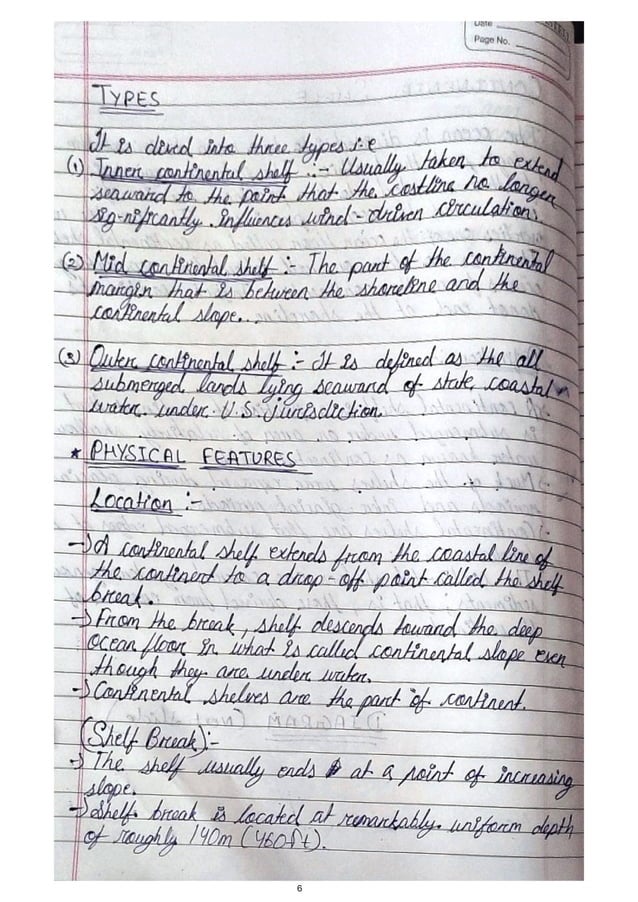 Date
Page No.
TYPES
It is divced into three types i.e
(1) Inner continental shelf :- Usually taken to extend
seaward to the point that the costline no longer
sig-nificantly. influences wind-driven circulation.
(2) Mid continental shelf :- The part of the continental
margin that is between the shoreline and the
continental slope...
(3) Outer continental shelf :- It is defined as the all
submerged lands lying seaward of state, coastal
water. under. U.S. jurisdiction.
* PHYSICAL FEATURES
Location :-
→ A continental shelf extends from the coastal line of
the continent to a drop-off point called the shelf
break.
→ From the break, shelf descends toward the deep
ocean floor in what is called continental slope even
though they are under water.
→ Continental shelves are the part of continent.
(Shelf Break) :-
→ The shelf usually ends at a point of increasing
slope.
→ Shelf break is located at remarkably. uniform depth
of roughly 140m (460ft).
6